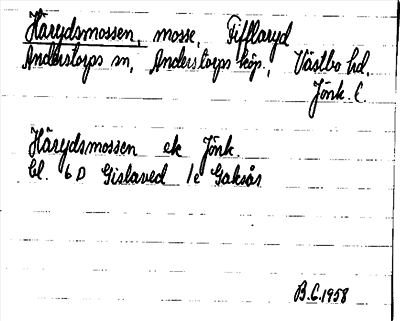 Härydsmossen, mosse, Fifflaryd
Anderstorps sn, Anderstorps köp., Västbo hd.
Jönk. l.
Härydsmossen ek Jönk.
bl. 6 D Gislaved 1e Gaksås
B.G.1958